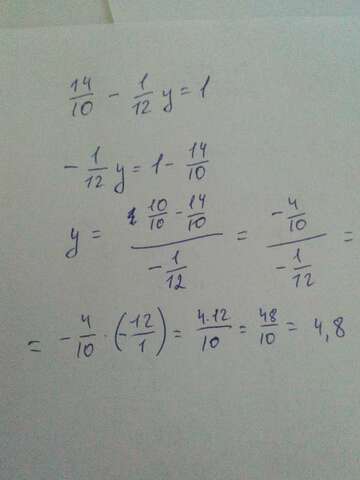 14/10 - 1/12 y = 1
- 1/12 y = 1 - 14/10
y = (10/10 - 14/10)/(- 1/12) = (- 4/10)/(- 1/12) =
= - 4/10 · (- 12/1) = 4·12/10 = 48/10 = 4,8